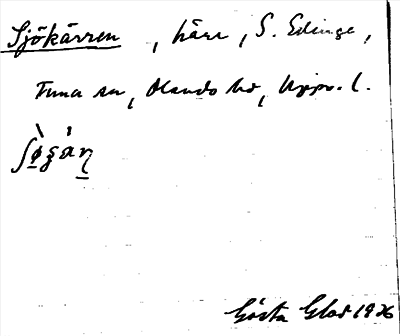 Sjökärren, kärr, S. Edinge,
Tuna sn, Olands hd, Upps. l.
Gösta Glad 1926